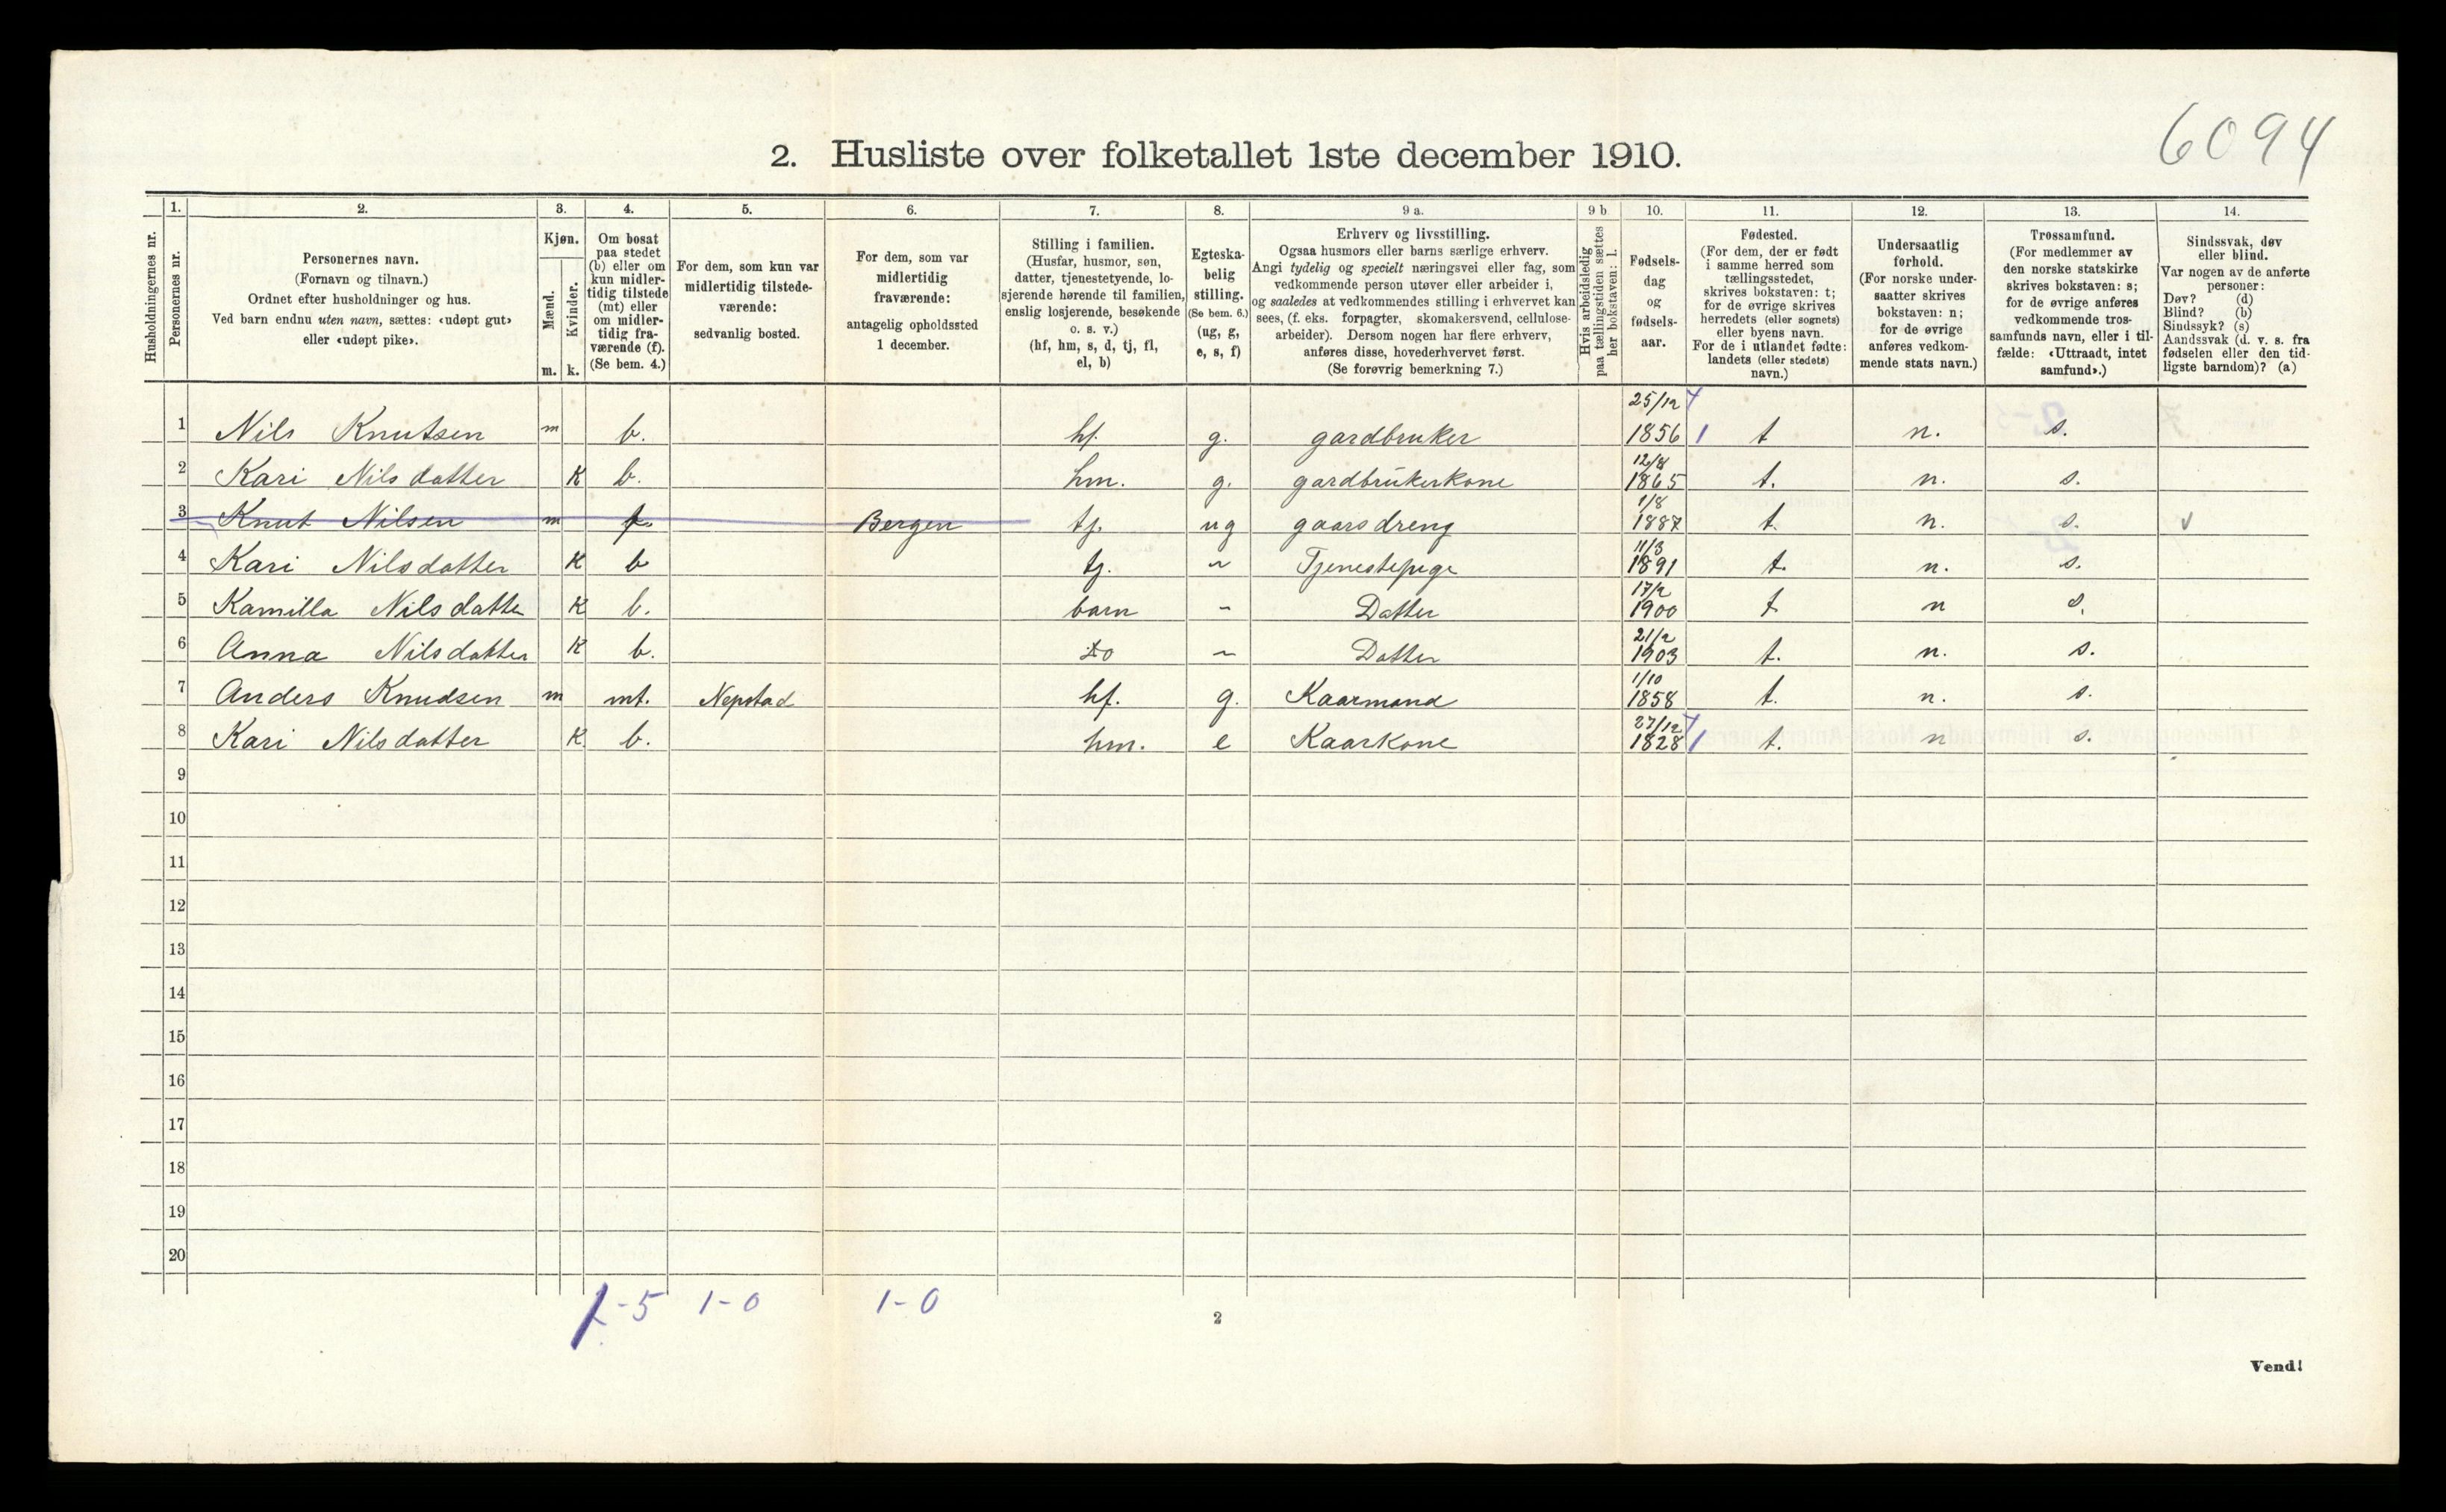 6094
2. Husliste over folketallet 1ste december 1910.
1. 2. 3. 4. 5. 6. 7. 8. 9 a. 9 b 10. 11. 12. 13. 14.
Husholdningernes nr.
Personernes nr.
Personernes navn.
(Fornavn og tilnavn.)
Ordnet efter husholdninger og hus.
Ved barn endnu uten navn, sættes: «udøpt gut»
eller «udøpt pike».
Kjøn.
Mænd.
Kvinder.
m. k.
Om bosat
paa stedet
(b) eller om
kun midler-
tidig tilstede
(mt) eller
om midler-
tidig fra-
værende (f).
(Se bem. 4.)
For dem, som kun var
midlertidig tilstede-
værende:
sedvanlig bosted.
For dem, som var
midlertidig
fraværende:
antagelig opholdssted
1 december.
Stilling i familien.
(Husfar, husmor, søn,
datter, tjenestetyende, lo-
sjerende hørende til familien,
enslig losjerende, besøkende
o. s. v.)
(hf, hm, s, d, tj, fl,
el, b)
Egteska-
belig
stilling.
(Se bem. 6.)
(ug, g,
e, s, f)
Erhverv og livsstilling.
Ogsaa husmors eller barns særlige erhverv.
Angi tydelig og specielt næringsvei eller fag, som
vedkommende person utøver eller arbeider i,
og saaledes at vedkommendes stilling i erhvervet kan
sees, (f. eks. forpagter, skomakersvend, cellulose-
arbeider). Dersom nogen har flere erhverv,
anføres disse, hovederhvervet først.
(Se forøvrig bemerkning 7.)
Hvis arbeidsledig
paa tællingstiden sættes
her bokstaven: l.
Fødsels-
dag
og
fødsels-
aar.
Fødested.
(For dem, der er født
i samme herred som
tællingsstedet,
skrives bokstaven: t;
for de øvrige skrives
herredets (eller sognets)
eller byens navn.
For de i utlandet fødte:
landets (eller stedets)
navn.)
Undersaatlig
forhold.
(For norske under-
saatter skrives
bokstaven: n;
for de øvrige
anføres vedkom-
mende stats navn.)
Trossamfund.
(For medlemmer av
den norske statskirke
skrives bokstaven: s;
for de øvrige anføres
vedkommende tros-
samfunds navn, eller i til-
fælde: «Uttraadt, intet
samfund».)
Sindssvak, døv
eller blind.
Var nogen av de anførte
personer:
Døv? (d)
Blind? (b)
Sindssyk? (s)
Aandssvak (d. v. s. fra
fødselen eller den tid-
ligste barndom)? (a)
1 Nils Knutsen m b. hf. g. gardbruker 25/12 1856 1 t n. s.
2 Kari Nilsdatter K b. hm. g. gardbrukerkone 12/8 1865 t. n. s.
3 Knut Nilsen m f. Bergen tj. ug gaarsdreng 1/8 1887 t. n. s. v
4 Kari Nilsdatter K b tj. ~ Tjenestepige 11/3 1891 t. n. s.
5 Kamilla Nilsdatte K b. barn - Datter 17/2 1900 t n s.
6 Anna Nilsdatter K b. do ~ Datter 21/2 1903 t. n. s.
7 Anders Knudsen m mt. Nepstad hf. g. Kaarmand 1/10 1858 t. n. s.
8 Kari Nilsdatter K b. hm. e Kaarkone 27/12 1828 1 t. n s.
9
10
11
12
13
14
15
16
17
18
19
20
1-5 1-0 1-0
2
Vend!